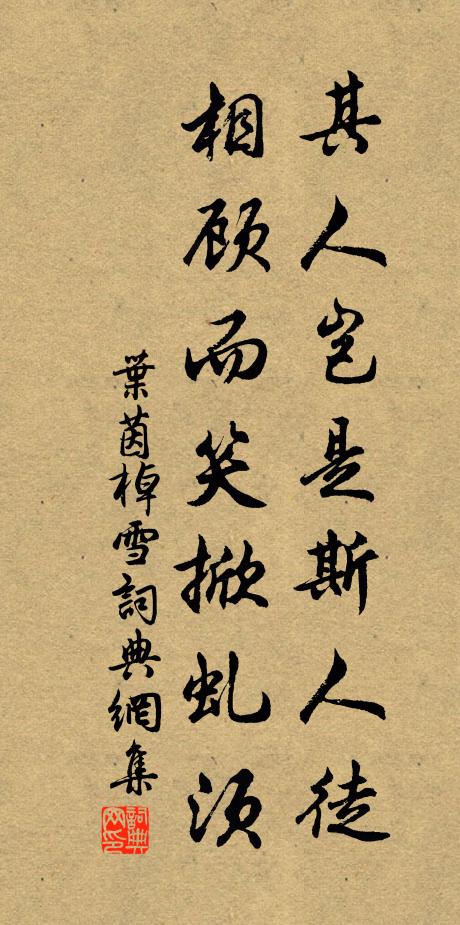 其人岂是斯人徒
相顾而笑掀虬须
葉茵棹雪詞典網集
詞典網印